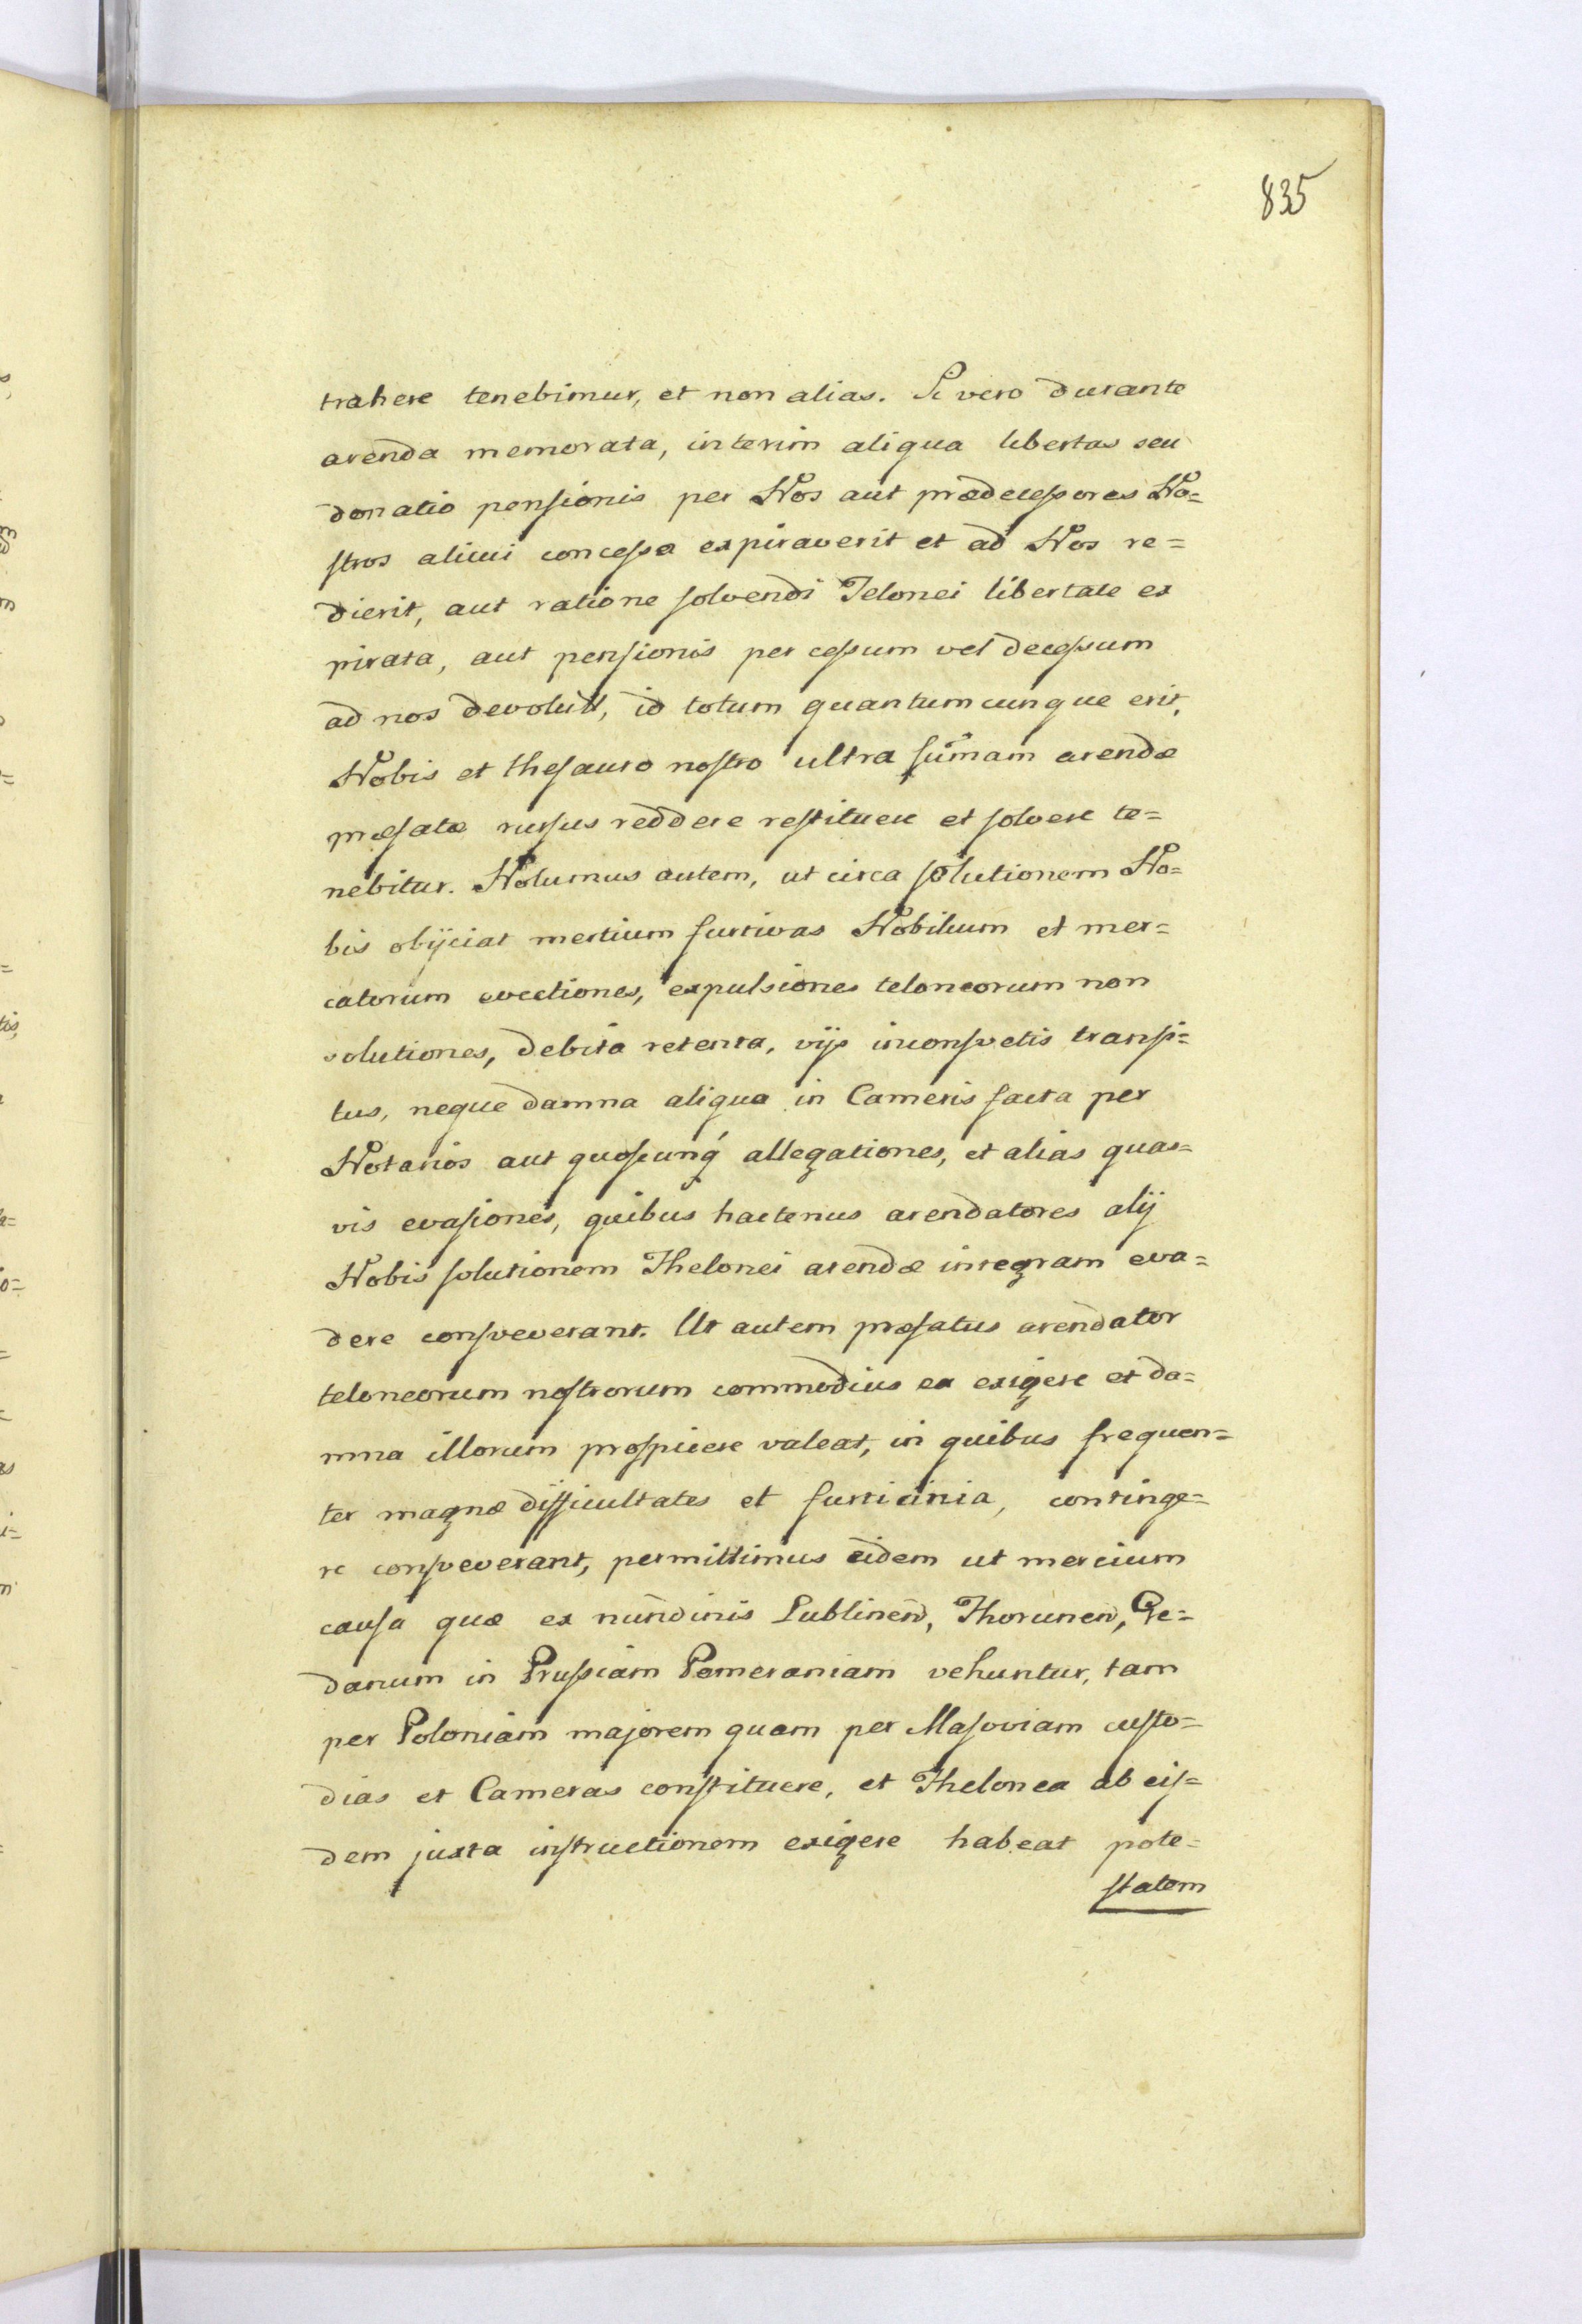 835
trahere tenebimur, et non alias. Si vero durante
arenda memorata, interim aliqua libertas seu
donatio pensionis per Nos aut prædecessores No=
stros alicui concessa expiraverit et ad Nos re=
dierit, aut ratione solvendi Telonei libertate ex
pirata, aut pensionis per cessum vel decessum
ad nos devolutæ, id totum quantumcunque erit,
Nobis et thesauro nostro ultra sum̃am arendæ
præfatæ rursus reddere restituere et solvere te=
nebitur. Nolumus autem, ut circa solutionem No=
bis obijciat mertium furtivas Nobilium et mer=
catorum evectiones, expulsiones teloneorum non
solutiones, debita retenta, vijs inconsvetis transi=
tus, neque damna aliqua in Cameris facta per
Notarios aut quoscunq́ allegationes, et alias quas=
vis evasiones, quibus hactenus arendatores alij
Nobis solutionem Thelonei arendæ integram eva=
dere consveverant. Ut autem præfatus arendator
teloneorum nostrorum commodius ea exigere et da=
mna illorum prospicere valeat, in quibus frequen=
ter magnæ difficultates et furticinia, continge=
re consveverant, permittimus eidem ut mercium
causa quæ ex nundinis Lublinen̄, Thorunen̄, Ge=
danum in Prussiam Pomeraniam vehuntur, tam
per Poloniam majorem quam per Masoviam custo=
dias et Cameras constituere, et Thelonea ab eis=
dem juxta instructionem exigere habeat pote=
statem